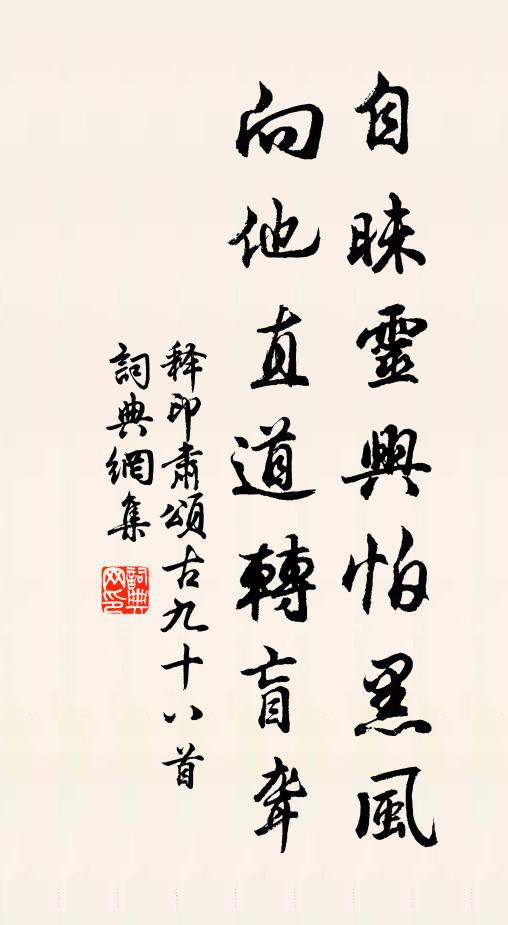 自昧靈興怕黑風
向他直道轉盲聾
释印肅頌古九十八首
詞典網集
詞典网印